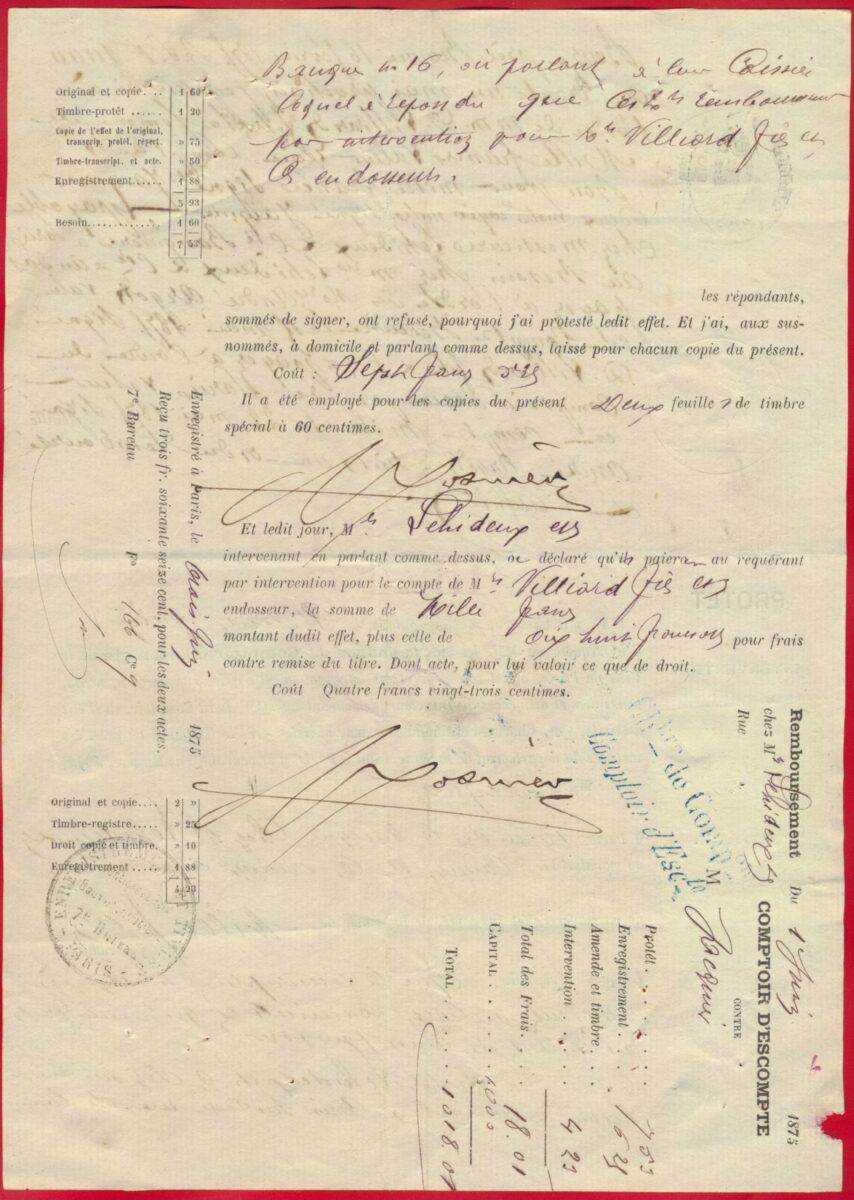 Banque no 16, où parlant à leur Caissier
lequel a répondu que ces Mrs rembourseront
par intervention pour Mrs Villiard fres et
Ce endosseurs.
Original et copie.... 1 60
Timbre-protêt...... 1 20
Copie de l'effet de l'original,
transcrip, protêt, répert. » 75
Timbre-transcript. et acte. » 50
Enregistrement..... 1 88
5 93
Besoin............ 1 60
7 53
les répondants,
sommés de signer, ont refusé, pourquoi j'ai protesté ledit effet. Et j'ai, aux sus-
nommés, à domicile et parlant comme dessus, laissé pour chacun copie du présent.
Coût : Sept francs
Il a été employé pour les copies du présent Deux feuilles de timbre
spécial à 60 centimes.
Et ledit jour, Mrs Lehideux et Ce
intervenant en parlant comme dessus, on déclaré qu'ils paieraient au requérant
par intervention pour le compte de Mrs Villiard fres et Ce
endosseur, la somme de Mille francs
montant dudit effet, plus celle de dix huit francs pour frais
contre remise du titre. Dont acte, pour lui valoir ce que de droit.
Coût Quatre francs vingt-trois centimes.
Enregistré à Paris, le trois Juin 1875
Reçu trois fr. soixante seize cent. pour les deux actes.
7e Bureau Fo 166 Ce 9
Original et copie.... 2 »
Timbre-registre..... » 25
Droit copie et timbre. » 10
Enregistrement.... 1 88
4 23
7e Bureau
PARIS
Comptoir d'Esc
Remboursement Du 1 Juin 1875
chez Mrs Lehideux COMPTOIR D'ESCOMPTE
Rue CONTRE
M Jacquier
Protêt. 7 53
Enregistrement. 6 25
Amende et timbre.
Intervention 4 23
Total des Frais. 18.01
CAPITAL 1000
TOTAL 1018.01